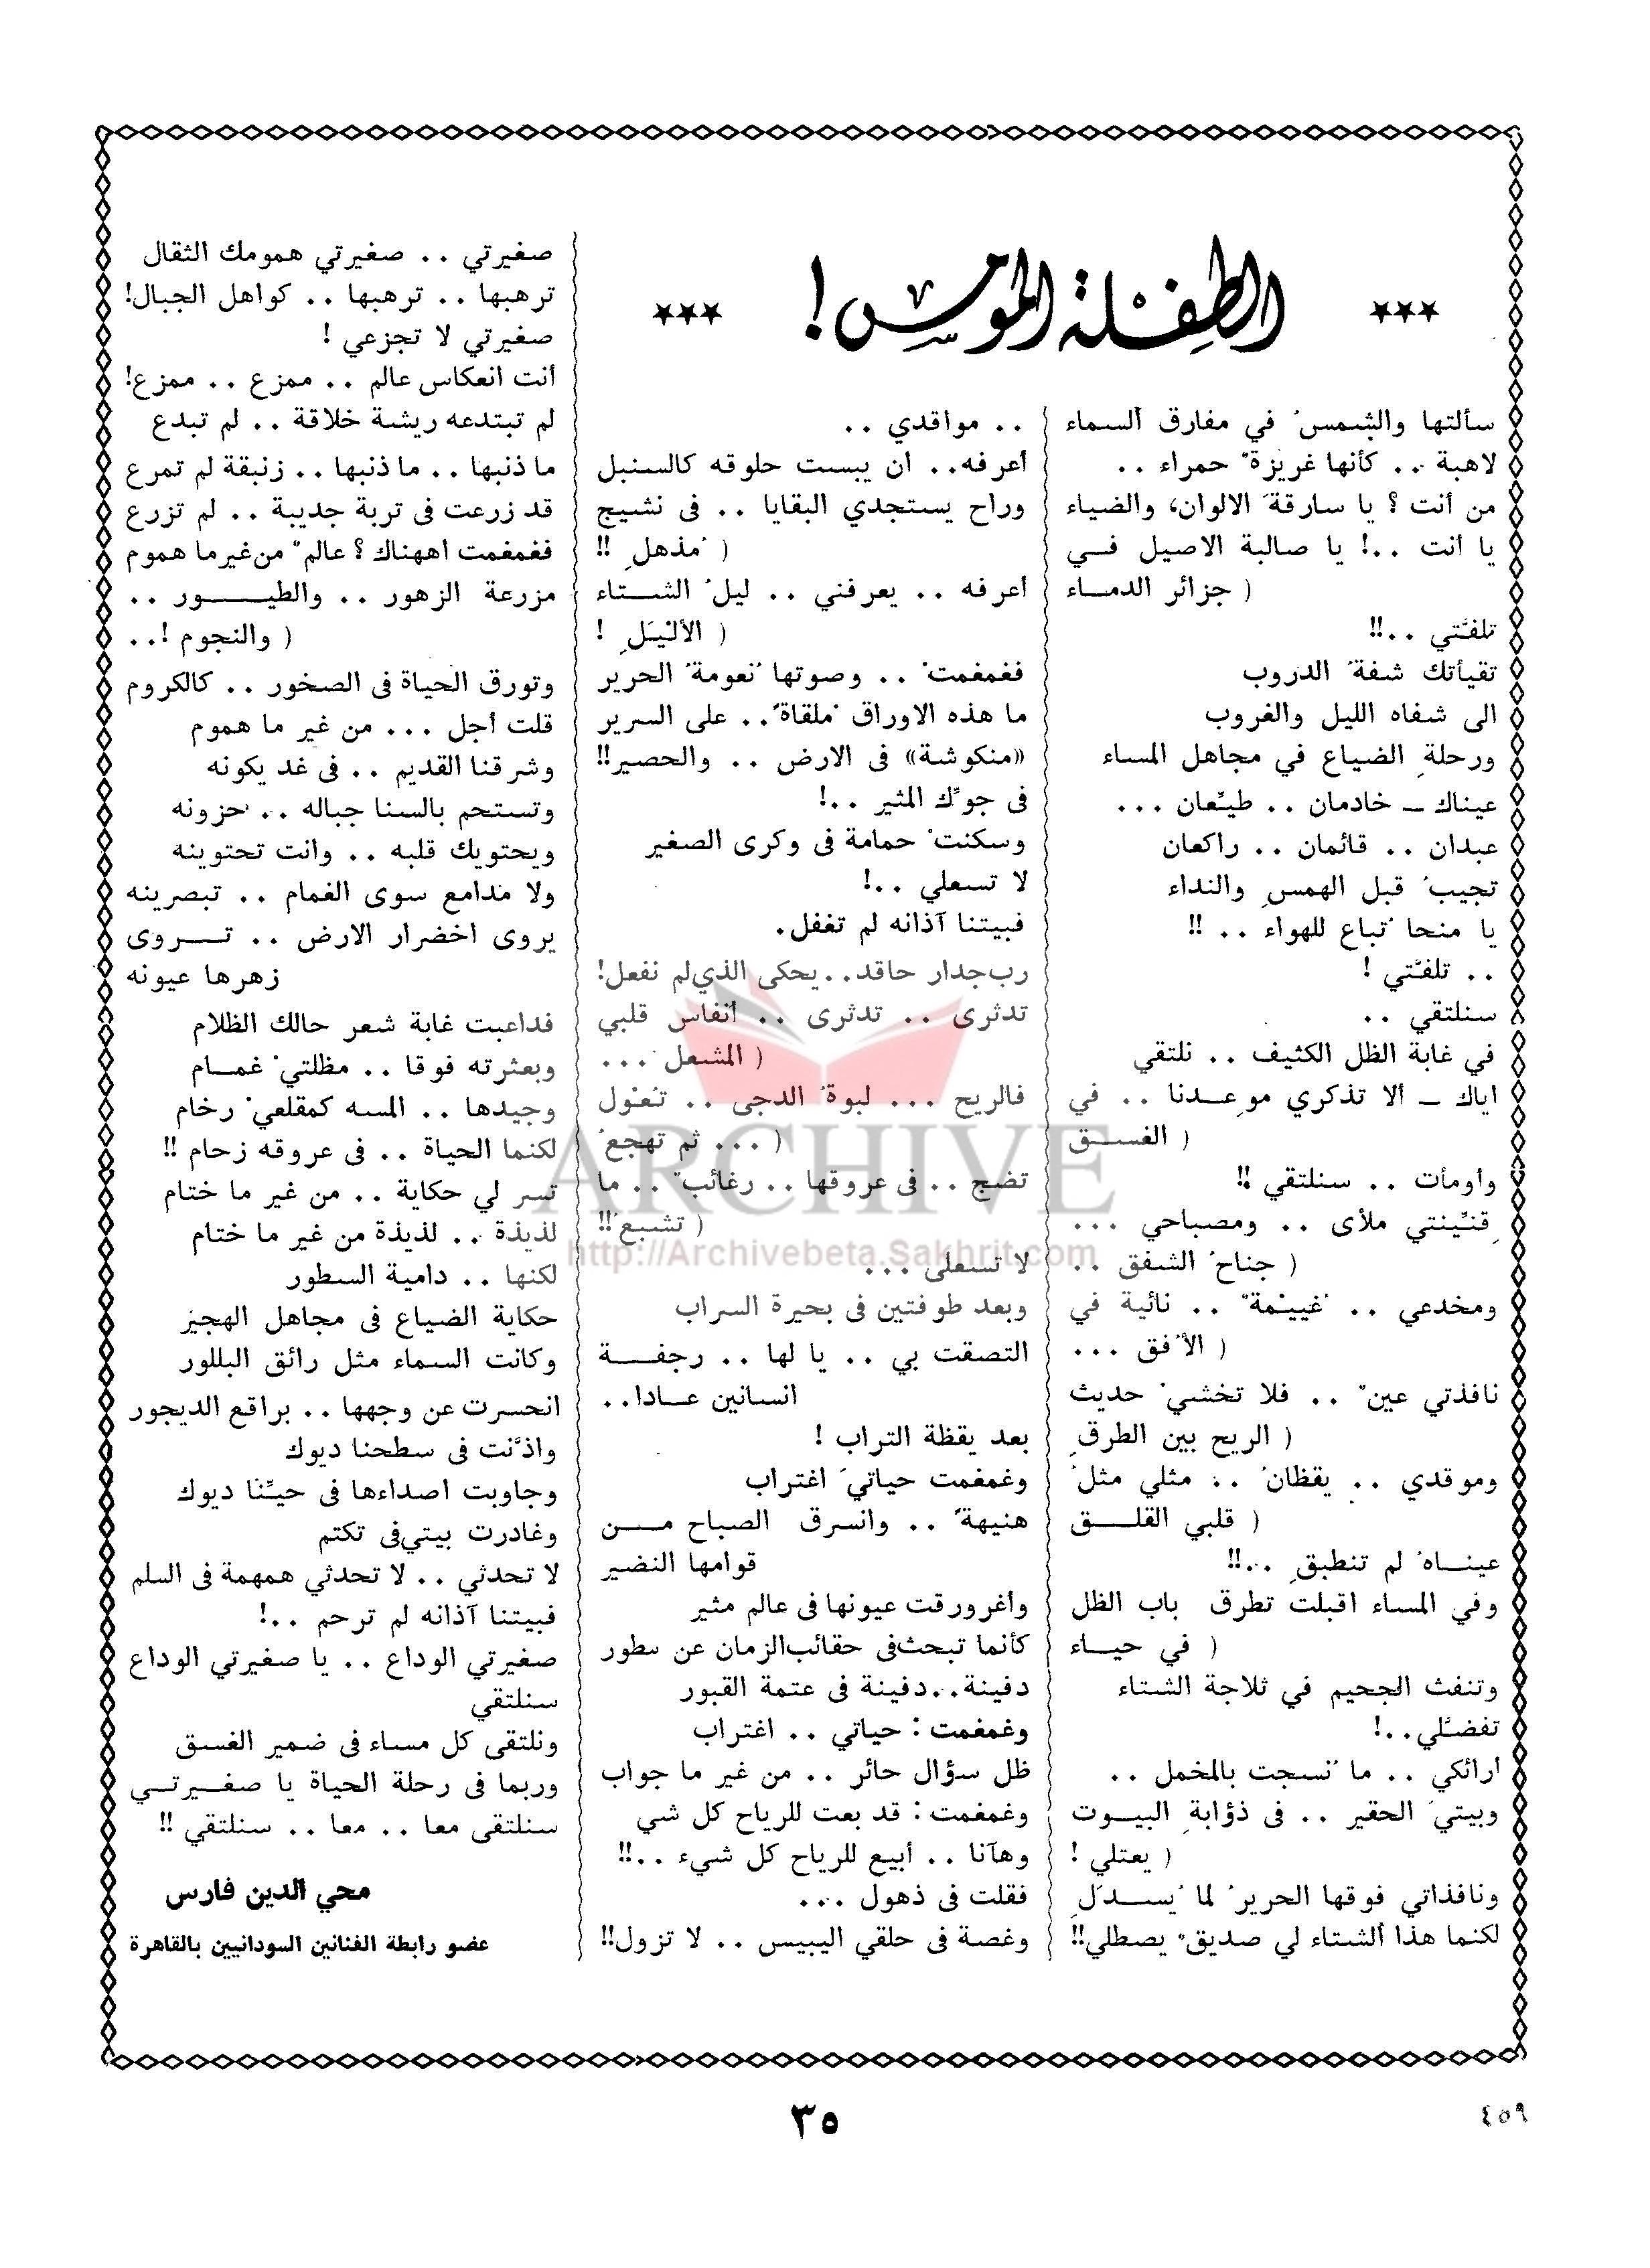 الطفلة المومس !
*** ***
سألتها والشمسُ في مفارق السماء
لاهبة . . كأنها غريزةٌ حمراء . .
من أنت ؟ يا سارقةَ الالوان، والضياء
يا أنت . .! يا صالبة الاصيل فـي
( جزائر الدمـاء
تلفـَّتي . .!!
تقيأتك شفةُ الدروب
الى شفاه الليل والغروب
ورحلةِ الضياع في مجاهل المساء
عيناك ــ خادمان . . طيـِّعان . . .
عبدان . . قائمان . . راكعان
تجيبُ قبل الهمسِ والنداء
يا منحا تُباع للهواء . . !!
. . تلفـَّتي !
سنلتقي . .
في غابة الظل الكثيف . . نلتقي
اياك ــ ألا تذكري موعـدنا . . في
( الغسـق
وأومأت . . سنلتقي !!
قنـِّينتي ملأى . . ومصباحي . . .
( جناحُ الشفق . .
ومخدعي . . غُييْمةٌ . . نائية في
( الأفُق . . .
نافذتي عينٌ . . فلا تخشيْ حديث
( الريح بين الطرقِ
وموقدي . . يقظانُ . . مثلي مثلُ
( قلبي القلـق
عينـاهُ لم تنطبقِ . .!!
وفي المساء اقبلت تطرق باب الظل
( في حياء
وتنفث الجحيم في ثلاجة الشتاء
تفضـَّلي . .!
أرائكي . . ما نُسجت بالمخمل . .
وبيتيَ الحقير . . فى ذؤابةِ البيـوت
( يعتلي !
ونافذاتي فوقها الحريرُ لما يُسـدَلِ
لكنما هذا ألشتاء لي صديقٌ يصطلي!!
. . مواقدي . .
أعرفه. . ان يبست حلوقه كالسنبل
وراح يستجدي البقايا . . فى نشيج
( مُذهلِ !!
أعرفه . . يعرفني . . ليلُ الشـتاء
( الأليَلِ !
فغمغمتْ . . وصوتها نُعومةُ الحرير
ما هذه الاوراق مُلقاةً. . على السرير
«منكوشة» فى الارض . . والحصير!!
فى جوِّك المثير . .!
وسكنتْ حمامة فى وكرى الصغير
لا تسعلي . .!
فبيتنا آذانه لم تغفل.
رب جدار حاقد. . يحكى الذي لم نفعل!
تدثرى . . تدثرى . . أنفاس قلبي
( المشعل . . .
فالريح . . . لبوةُ الدجى . . تُعْول
( . . . ثم تهجعُ
تضج . . فى عروقها . . رغائبٌ . . ما
( تشبعُ!!
لا تسعلى . . .
وبعد طوفتين فى بحيرة السراب
التصقت بي . . يا لها . . رجفـة
انسانين عـادا. .
بعد يقظة التراب !
وغمغمت حياتيَ اغتراب
هنيهةً . . وانسرق الصباح مـن
قوامها النضير
وأغرورقت عيونها فى عالم مثير
كأنما تبحث فى حقائب الزمان عن سطور
دفينة. . دفينة فى عتمة القبور
وغمغمت : حياتي . . اغتراب
ظل سؤال حائر . . من غير ما جواب
وغمغمت : قد بعت للرياح كل شي
وهآنا . . أبيع للرياح كل شيء . .!!
فقلت فى ذهول . . .
وغصة فى حلقي اليبيس . . لا تزول!!
صغيرتي . . صغيرتي همومك الثقال
ترهبها . . ترهبها . . كواهل الجبال!
صغيرتي لا تجزعي !
أنت انعكاس عالم . . ممزع . . ممزع!
لم تبتدعه ريشة خلاقة . . لم تبدع
ما ذنبها . . ما ذنبها . . زنبقة لم تمرع
قد زرعت فى تربة جديبة . . لم تزرع
فغمغمت اههناك ؟ عالمٌ من غير ما هموم
مزرعة الزهور . . والطيـور . .
( والنجوم !. .
وتورق الحياة فى الصخور . . كالكروم
قلت أجل . . . من غير ما هموم
وشرقنا القديم . . فى غد يكونه
وتستحم بالسنا جباله . . حزونه
ويحتويك قلبه . . وانت تحتوينه
ولا مدامع سوى الغمام . . تبصرينه
يروى اخضرار الارض . . تـروى
زهرها عيونه
فداعبت غابة شعر حالك الظلام
وبعثرته فوقا . . مظلتيْ غمـام
وجيدها . . المسه كمقلعيْ رخام
لكنما الحياة . . فى عروقه زحام !!
تسر لي حكاية . . من غير ما ختام
لذيذة . . لذيذة من غير ما ختام
لكنها . . دامية السطور
حكاية الضياع فى مجاهل الهجير
وكانت السماء مثل رائق البللور
انحسرت عن وجهها . . براقع الديجور
واذَّنت فى سطحنا ديوك
وجاوبت اصداءها فى حيـِّنا ديوك
وغادرت بيتي فى تكتم
لا تحدثي . . لا تحدثي همهمة فى السلم
فبيتنا آذانه لم ترحم . .!
صغيرتي الوداع . . يا صغيرتي الوداع
سنلتقي
ونلتقى كل مساء فى ضمير الغسق
وربما فى رحلة الحياة يا صغـيرتـي
سنلتقى معا . . معا . . سنلتقي !!
محي الدين فارس
عضو رابطة الفنانين السودانيين بالقاهرة
ARCHIVE
http://Archivebeta.Sakhrit.com
٣٥
٤٥٩